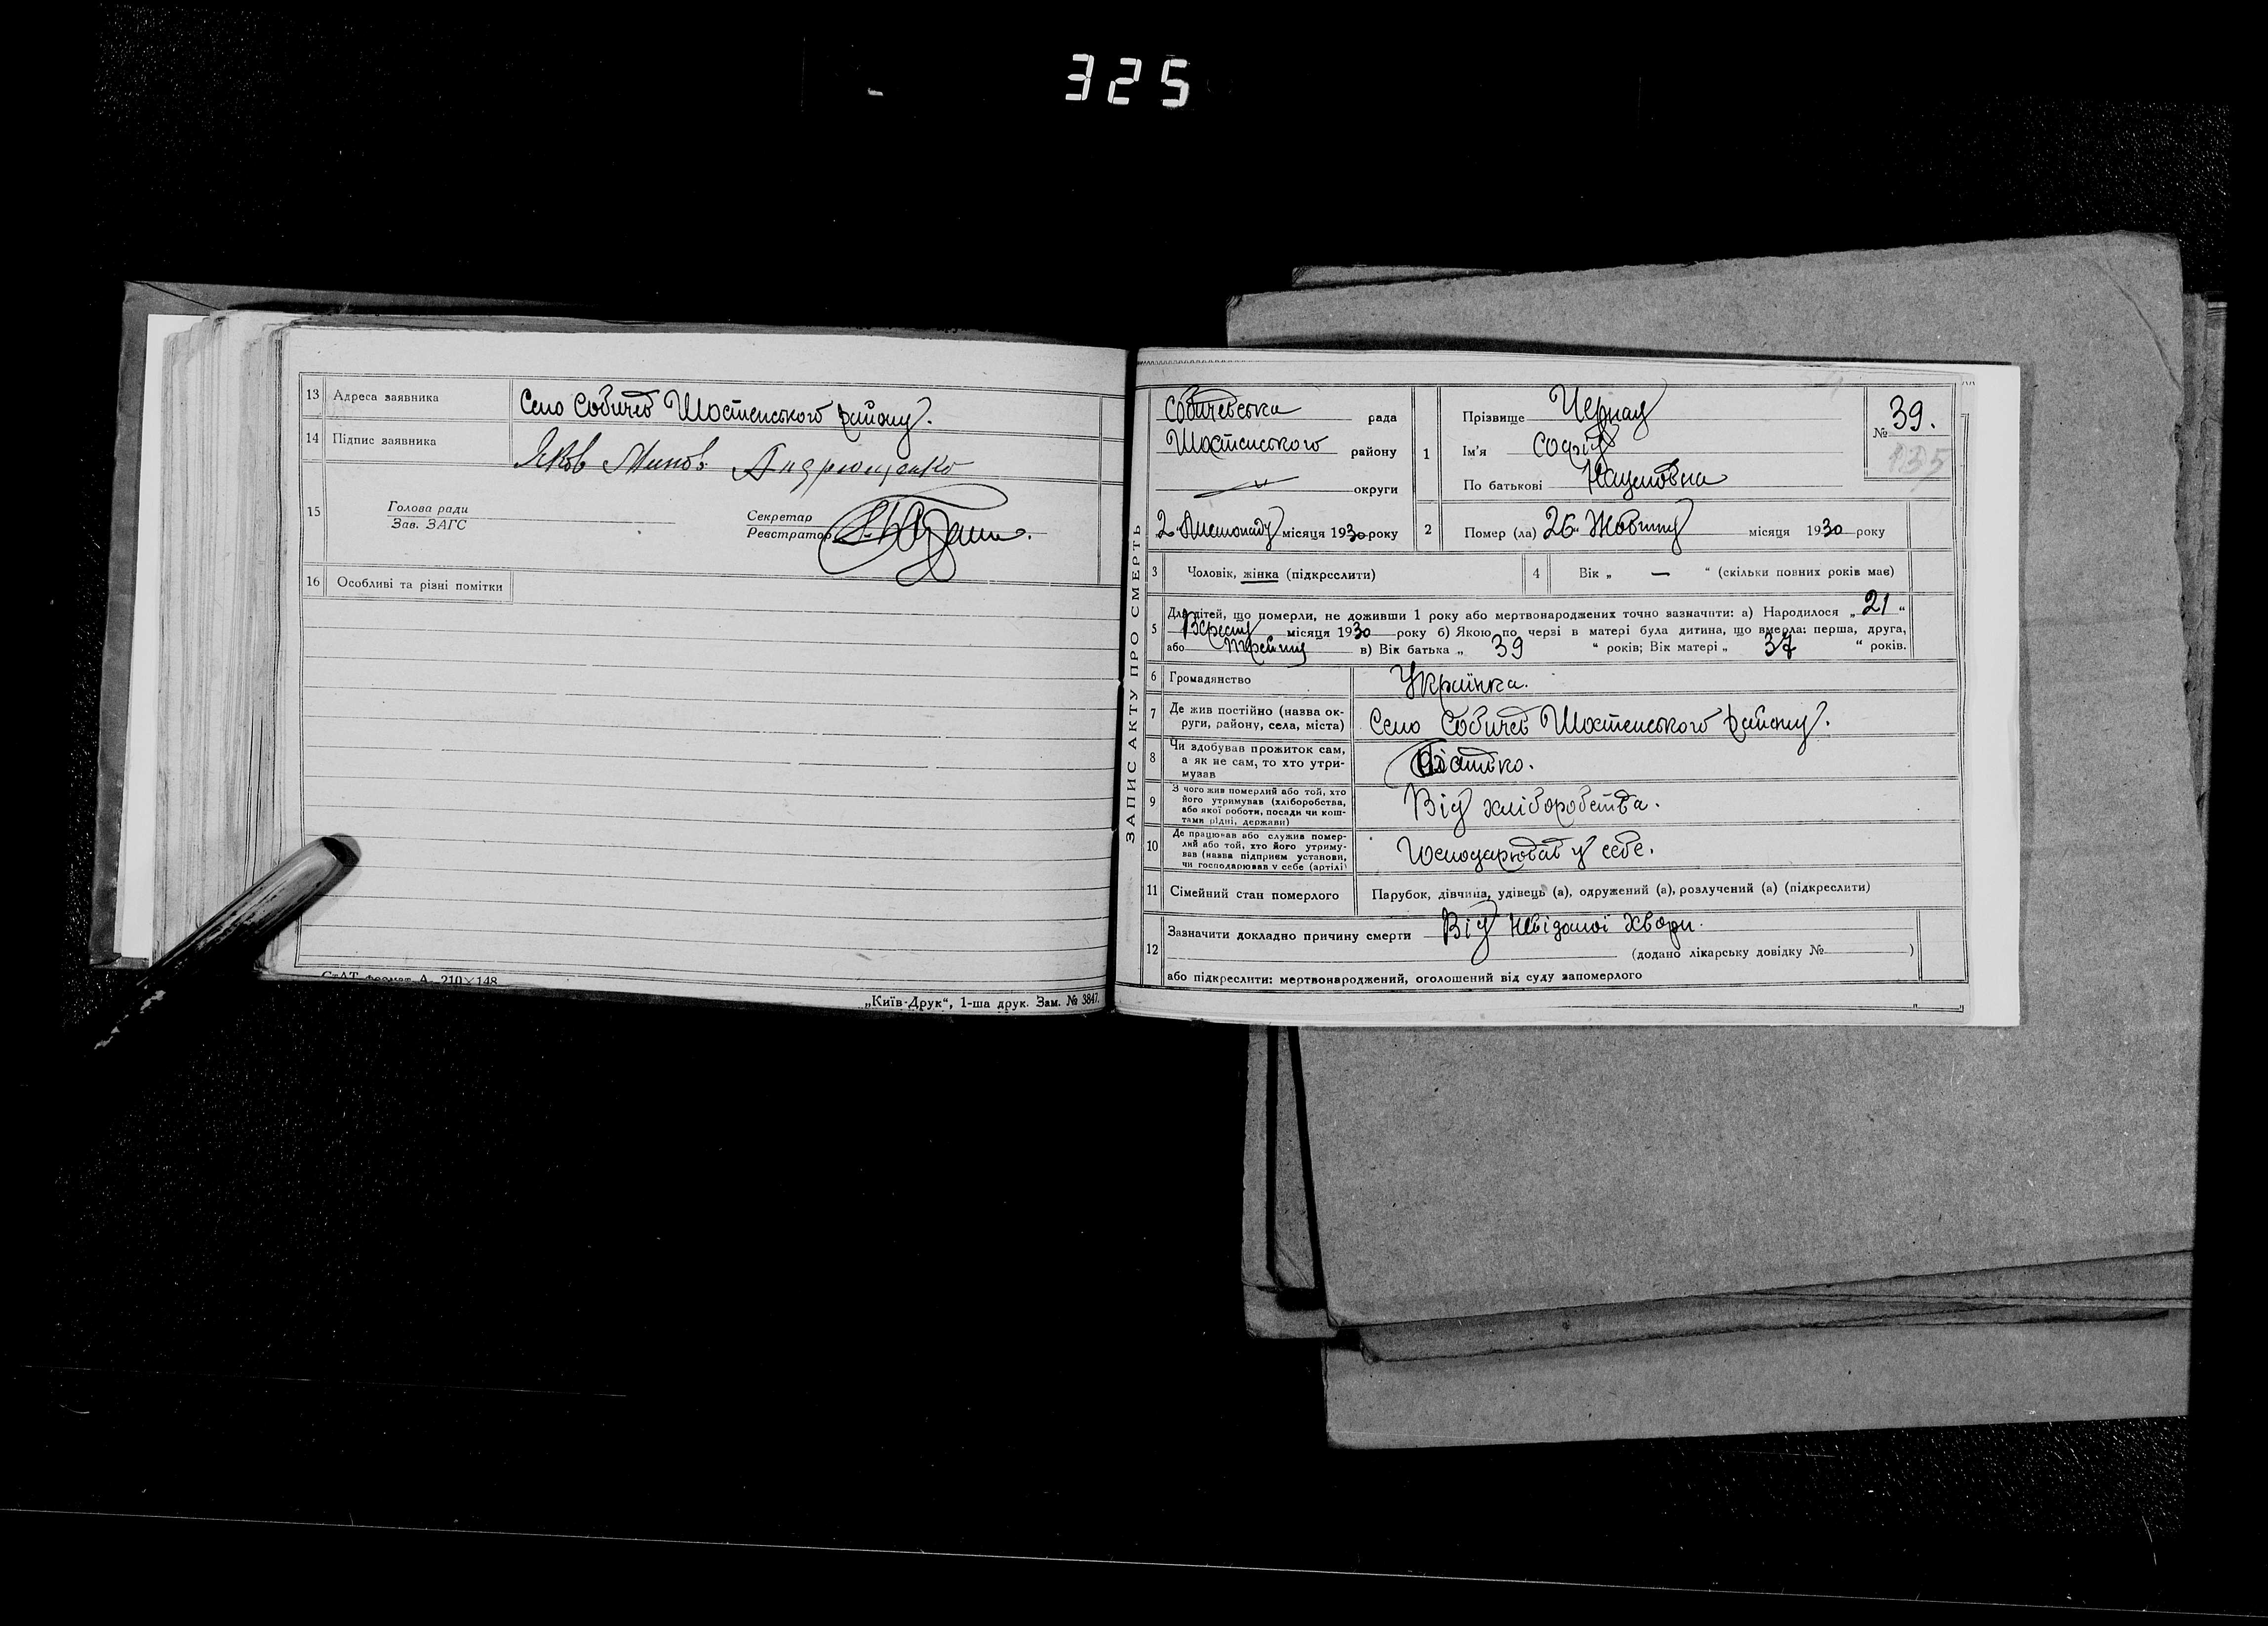 325
13 Адреса заявника Село Собичев Шостенського району.
14 Підпис заявника Яков Минов Андрющенко
15 Голова ради
Зав. ЗАГС
Секретар
Реєстратор
16 Особливі та різні помітки
СтАТ формат А 210×148
„Київ-Друк“, 1-ша друк. Зам. № 3847.
ЗАПИС АКТУ ПРО СМЕРТЬ
Собичевська рада
Шостенського району
округи
2 Листопаду місяця 1930 року
1 Прізвище Черная
Ім'я Софія
По батькові Наумовна
№ 39.
135
2 Помер (ла) 26 Жовтня місяця 1930 року
3 Чоловік, жінка (підкреслити)
4 Вік „ — “ (скільки повних років має)
5 Для дітей, що померли, не доживши 1 року або мертвонароджених точно зазначити: а) Народилося „21“
Вересня місяця 1930 року б) Якою по черзі в матері була дитина, що вмерла: перша, друга,
або третя в) Вік батька „ 39 “ років; Вік матері „ 37 “ років.
6 Громадянство Українка.
7 Де жив постійно (назва ок-
руги, району, села, міста) Село Собичев Шостенського району.
8 Чи здобував прожиток сам,
а як не сам, то хто утри-
мував Батько.
9 З чого жив померлий або той, хто
його утримував (хліборобства,
або якої роботи, посади чи кош-
тами рідні, держави) Від хліборобства.
10 Де працював або служив помер-
лий або той, хто його утриму-
вав (назва підприєм установи,
чи господарював у себе (артілі) Господарював у себе.
11 Сімейний стан померлого Парубок, дівчина, удівець (а), одружений (а), розлучений (а) (підкреслити)
12 Зазначити докладно причину смерти Від невідомої хвори.
(додано лікарську довідку № )
або підкреслити: мертвонароджений, оголошений від суду запомерлого